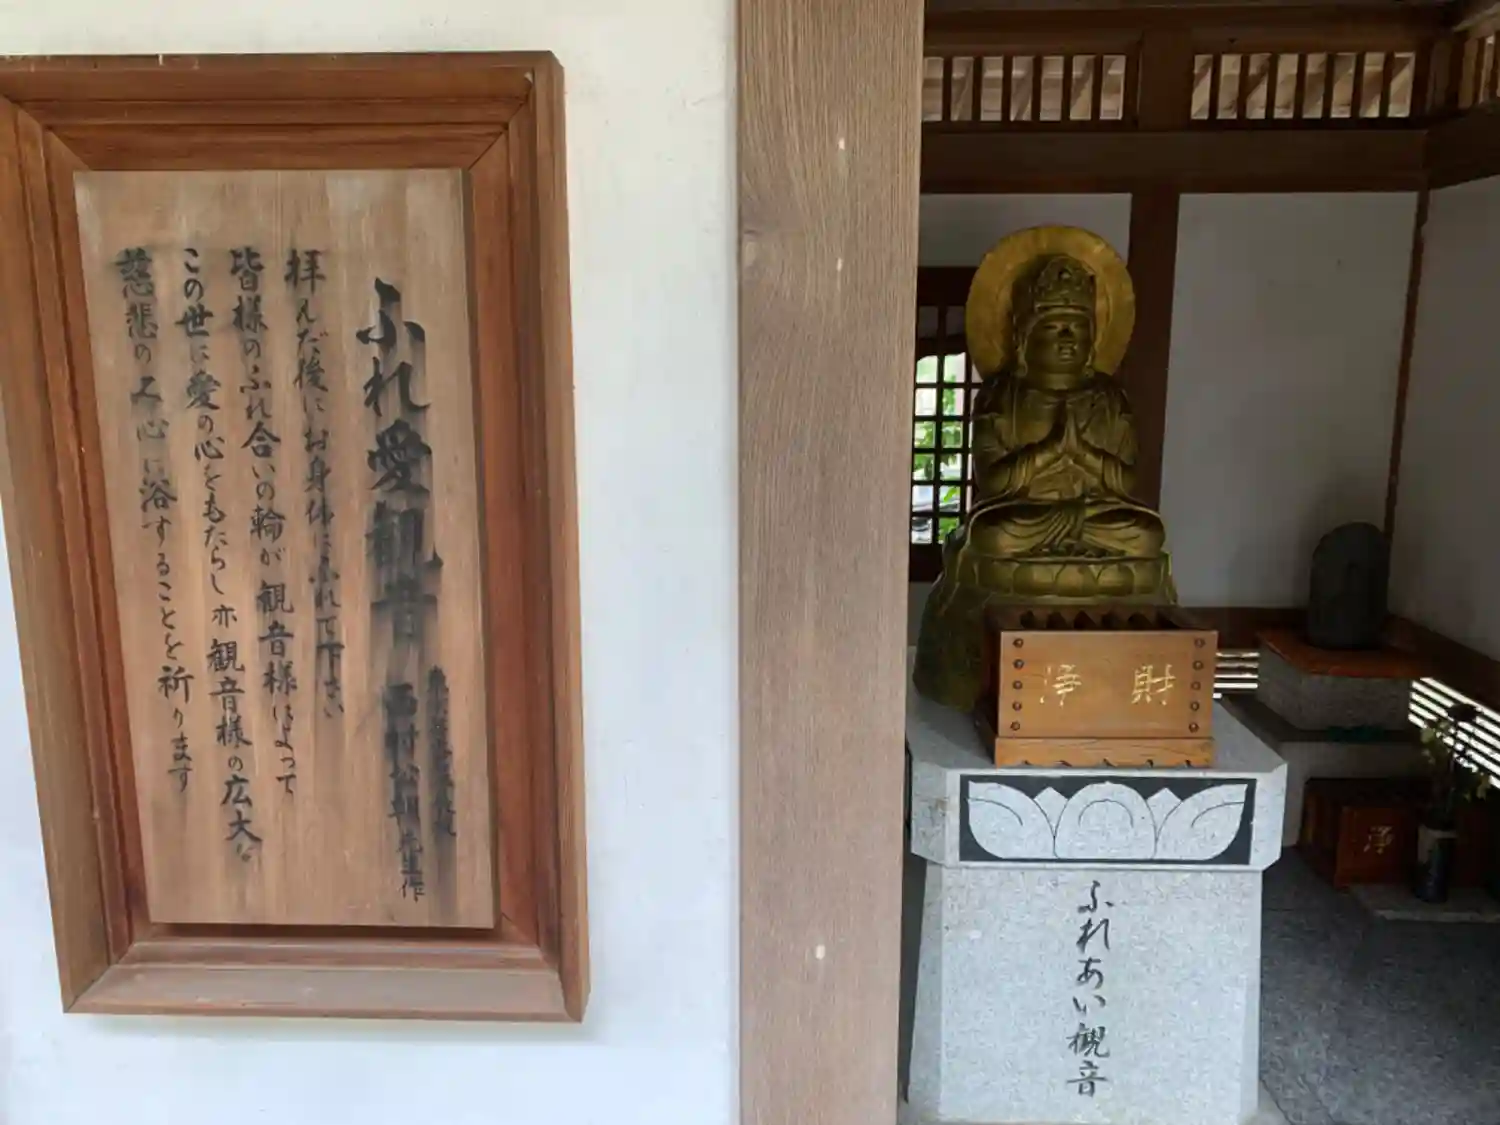 ふれ愛観音
西村公朝先生作
拝んだ後にお身体にふれて下さい
皆様のふれ合いの輪が観音様によって
この世に愛の心をもたらし亦観音様の広大な
慈悲の心に浴することを祈ります
浄財
ふれあい観音
浄